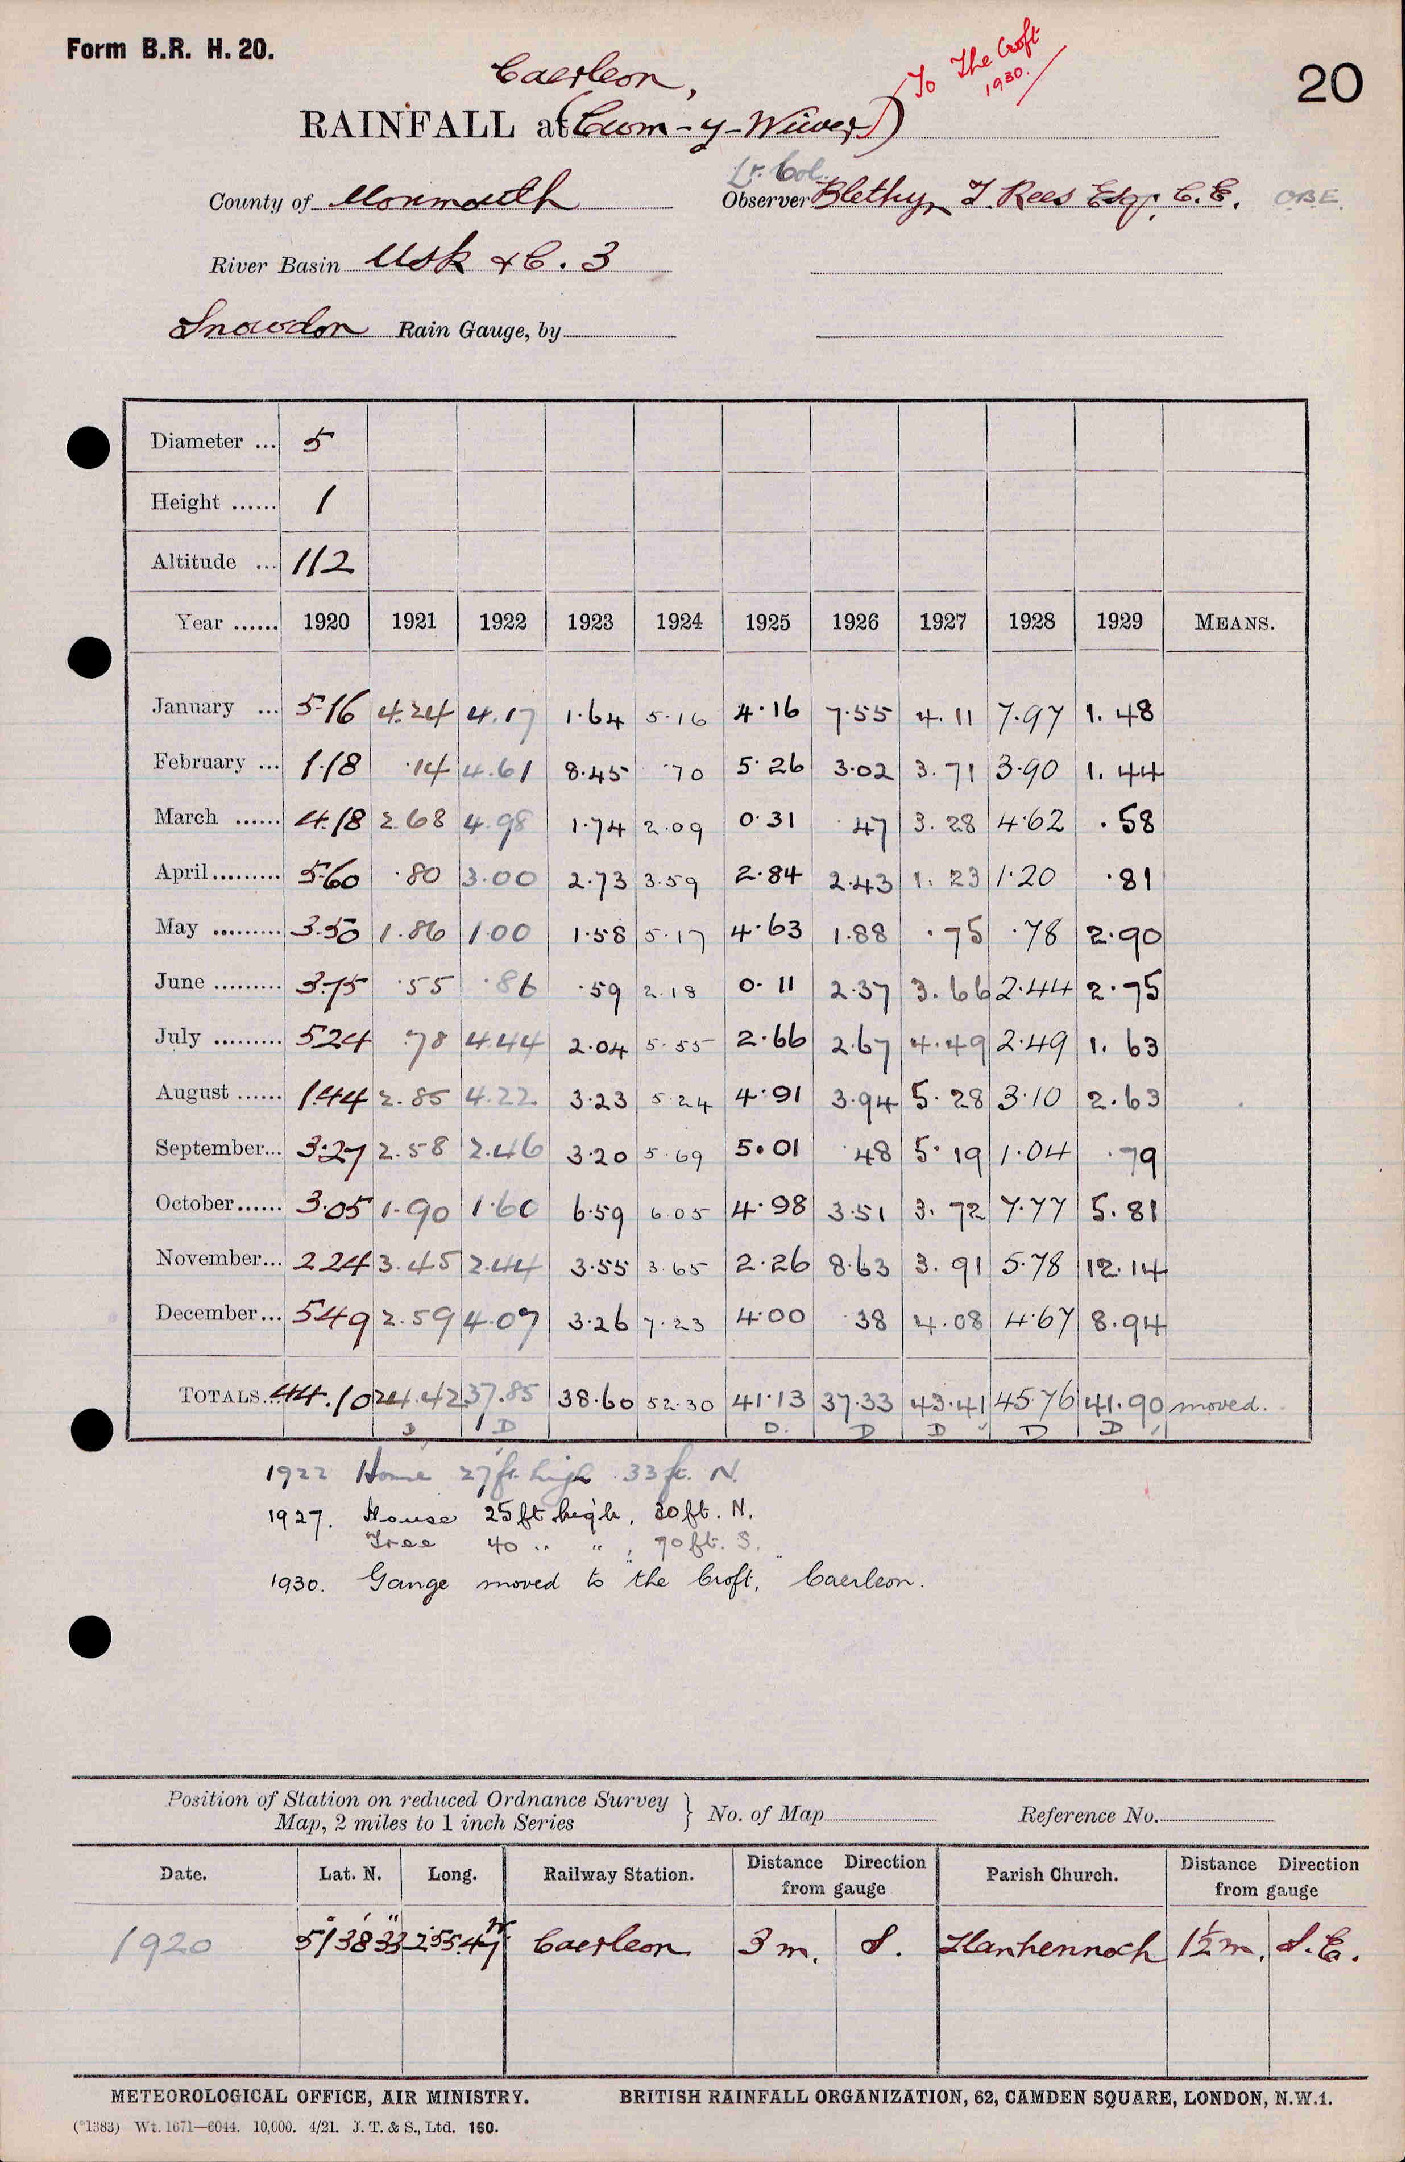 Form B.R. H. 20.
20
To The Croft
1930.
Caerleon,
RAINFALL at (Cwm-y-Wiwer)
Lt. Col.
County of Monmouth Observer Blethyn T. Rees Esq. C.E. OBE.
River Basin Usk & C. 3
Snowdon Rain Gauge, by
Diameter ... 5
Height ...... 1
Altitude ... 112
Year ...... 1920 1921 1922 1923 1924 1925 1926 1927 1928 1929 MEANS.
January ... 5.16 4.24 4.17 1.64 5.16 4.16 7.55 4.11 7.97 1.48
February ... 1.18 .14 4.61 8.45 .70 5.26 3.02 3.71 3.90 1.44
March ...... 4.18 2.68 4.98 1.74 2.09 0.31 .47 3.28 4.62 .58
April ......... 5.60 .80 3.00 2.73 3.59 2.84 2.43 1.23 1.20 .81
May ......... 3.50 1.86 1.00 1.58 5.17 4.63 1.88 .75 .78 2.90
June ......... 3.75 .55 .86 .59 2.18 0.11 2.37 3.66 2.44 2.75
July ......... 5.24 .78 4.44 2.04 5.55 2.66 2.67 4.49 2.49 1.63
August ...... 1.44 2.85 4.22 3.23 5.24 4.91 3.94 5.28 3.10 2.63
September... 3.27 2.58 2.46 3.20 5.69 5.01 .48 5.19 1.04 .79
October...... 3.05 1.90 1.60 6.59 6.05 4.98 3.51 3.72 7.77 5.81
November... 2.24 3.45 2.44 3.55 3.65 2.26 8.63 3.91 5.78 12.14
December... 5.49 2.59 4.07 3.26 7.23 4.00 .38 4.08 4.67 8.94
TOTALS... 44.10 24.42 37.85 38.60 52.30 41.13 37.33 43.41 45.76 41.90 moved.
D D D. D D D D
1922 House 27ft. high 33ft. N.
1927. House 25ft high, 30ft. N.
Tree 40 " " , 70ft. S.
1930. Gauge moved to "the Croft," Caerleon.
Position of Station on reduced Ordnance Survey
Map, 2 miles to 1 inch Series } No. of Map Reference No.
Date. Lat. N. Long. Railway Station. Distance Direction from gauge Parish Church. Distance Direction from gauge
1920 51° 38' 33" 2 55 47 W Caerleon 3 m. S. Llanhennoch 1½ m. S.E.
METEOROLOGICAL OFFICE, AIR MINISTRY. BRITISH RAINFALL ORGANIZATION, 62, CAMDEN SQUARE, LONDON, N.W.1.
(*1383) Wt. 1671—6044. 10,000. 4/21. J. T. & S., Ltd. 160.